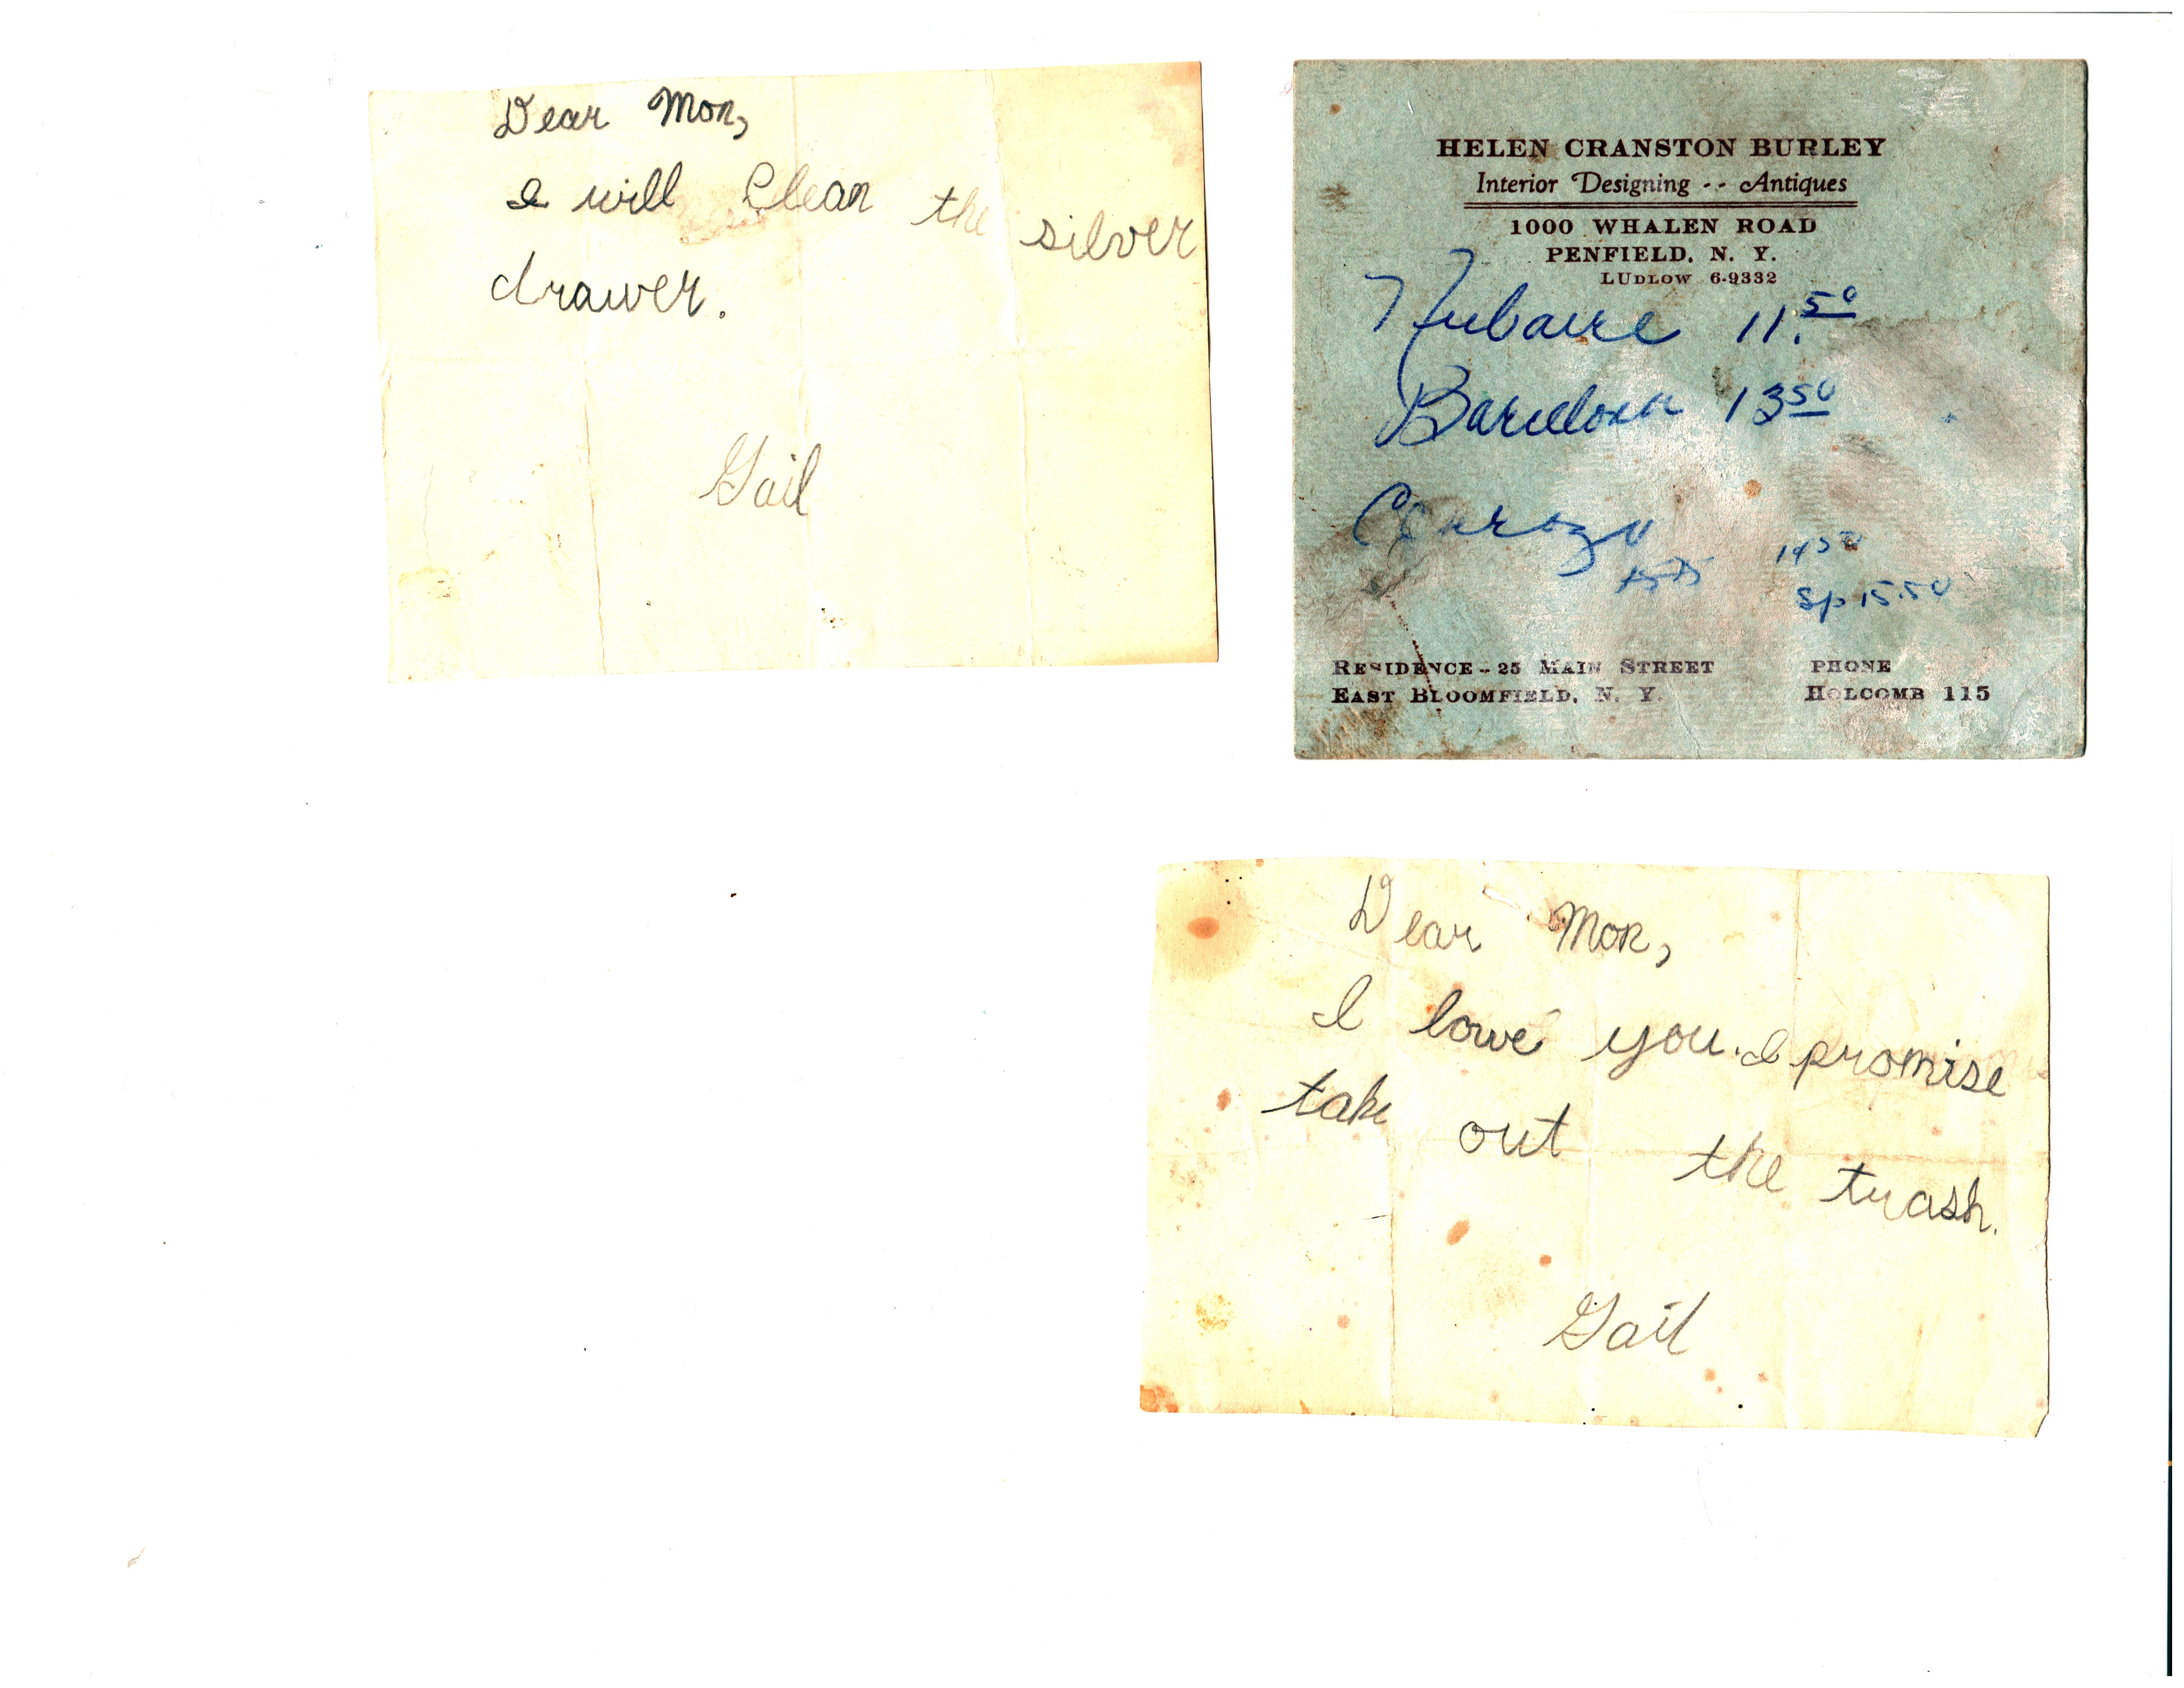 Dear Mon,
I will Clean the silver
drawer.
Gail
HELEN CRANSTON BURLEY
Interior Designing -- Antiques
1000 WHALEN ROAD
PENFIELD, N. Y.
LUDLOW 6-9332
11.50
Barcelona 13 50
14 50
Sp 15.50
RESIDENCE - 25 MAIN STREET
EAST BLOOMFIELD, N. Y.
PHONE
HOLCOMB 115
Dear Mon,
I love you. I promise
take out the trash.
Gail